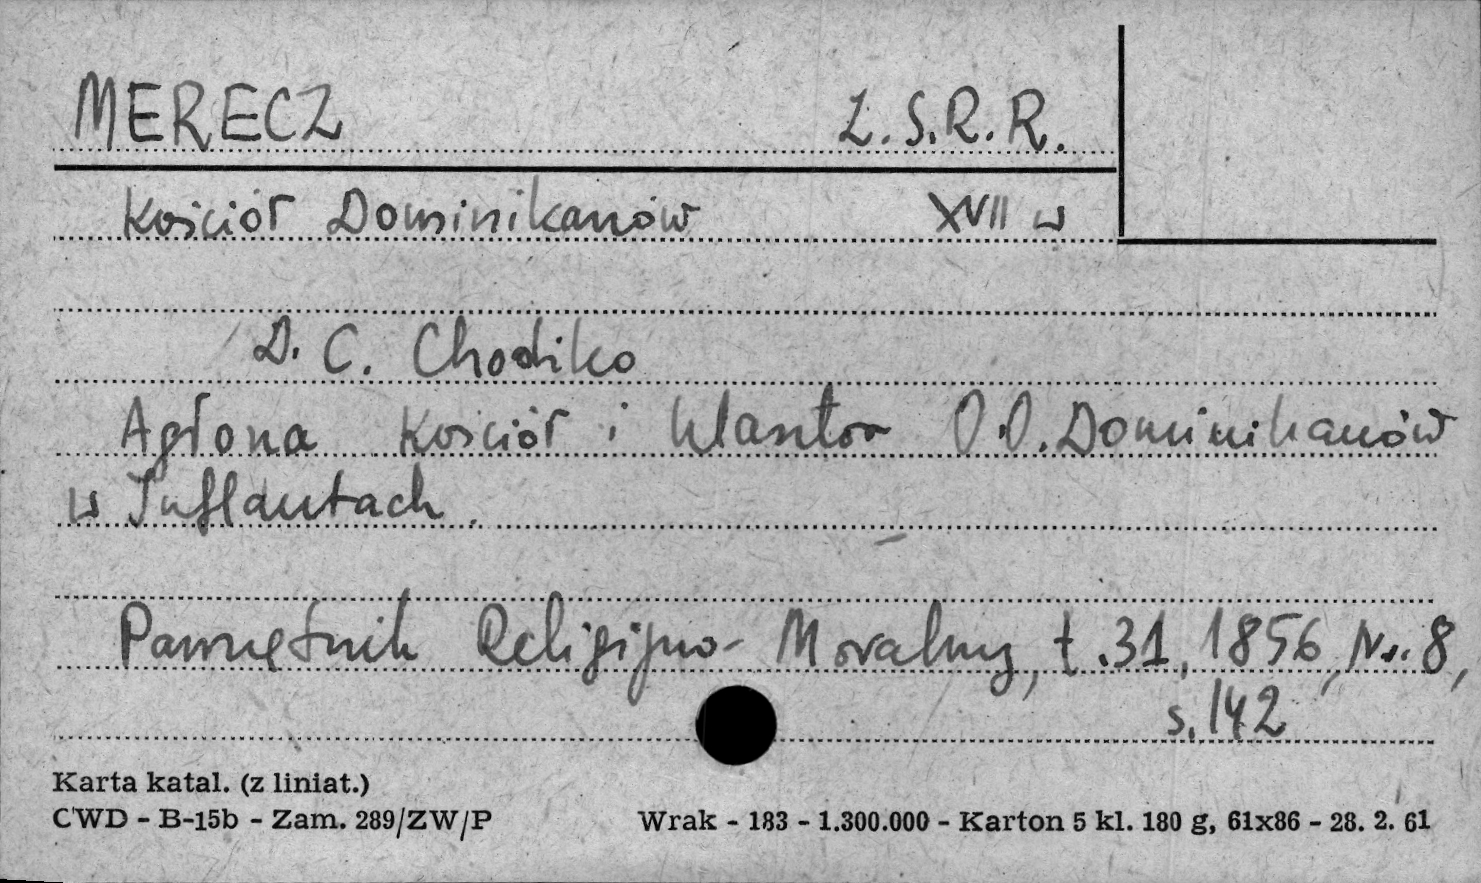 MERECZ L.S.R.R.
Kościół Dominikanów XVII w
D. C. Chodźko
Agłona Kościół i klasztor O.O. Dominikanów
w Inflantach.
Pamiętnik Religijno-Moralny, t.31, 1856, Nr. 8,
s. 142
Karta katal. (z liniat.)
CWD - B-15b - Zam. 289/ZW/P Wrak - 183 - 1.300.000 - Karton 5 kl. 180 g, 61x86 - 28. 2. 61